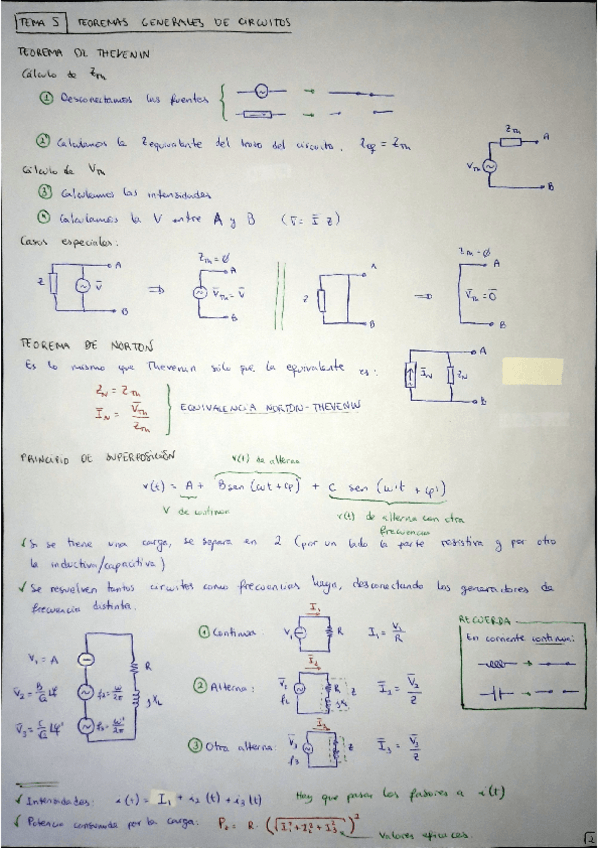 TEMA 5 TEOREMAS GENERALES DE CIRCUITOS
TEOREMA DE THEVENIN
Cálculo de Z_Th
① Desconectamos las fuentes
② Calculamos la Z equivalente del trozo del circuito. Z_eq = Z_Th
Z_Th A
V_Th
B
Cálculo de V_Th
③ Calculamos las intensidades
④ Calculamos la V entre A y B (V̄ = Ī Z)
Casos especiales:
Z V̄ A B ⇒ Z_Th = ∅ A V̄_Th = V̄ B
Z A B ⇒ Z_Th = ∅ A V̄_Th = 0̄ B
TEOREMA DE NORTON
Es lo mismo que Thevenin sólo que la equivalente es:
Ī_N Z_N A B
Z_N = Z_Th
Ī_N = V̄_Th / Z_Th
EQUIVALENCIA NORTON-THEVENIN
PRINCIPIO DE SUPERPOSICIÓN
v(t) de alterna
v(t) = A + B sen (ωt + φ) + C sen (ω't + φ')
V de continua
v(t) de alterna con otra frecuencia
✓ Si se tiene una carga, se separa en 2 (por un lado la parte resistiva y por otro
la inductiva/capacitiva)
✓ Se resuelven tantos circuitos como frecuencias haya, desconectando los generadores de
frecuencia distinta.
V₁ = A
V̄₂ = B/√2 ∠φ f₂ = ω/2π
V̄₃ = C/√2 ∠φ' f₃ = ω'/2π
R
jX_L
① Continua: I₁ V₁ R I₁ = V₁/R
② Alterna: V̄₂ f₂ R Z
③ Otra alterna: Ī₃ V̄₃ f₃ Z Ī₃ = V̄₃/Z
RECUERDA
En corriente continua:
✓ Intensidades: i(t) = I₁ + i₂(t) + i₃(t) Hay que pasar los fasores a i(t)
✓ Potencia consumida por la carga: P_Z = R · (√(I₁² + I₂² + I₃²))²
Valores eficaces.
2